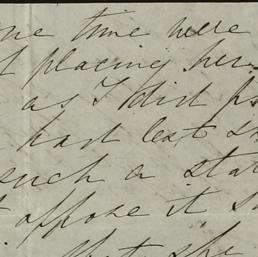 time were
placing her
as I did
had left
such a stat
oppose it
that she